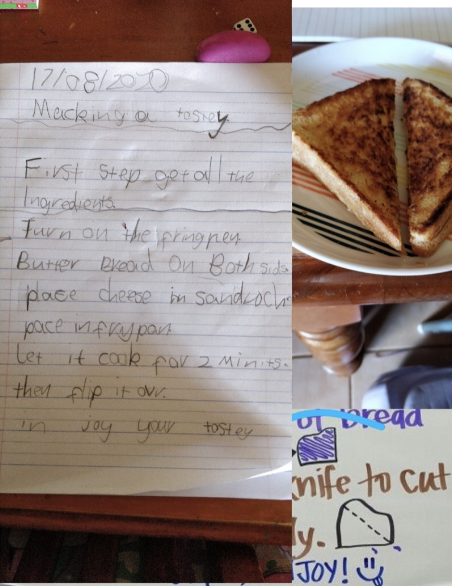 17/08/2020
Macking a tostey
First step get all the
Ingredients
Turn on the fringpen
Butter Bread On Both sids
place cheese in sandwoch
pace in frypan
let it cook for 2 minits.
then flip it ovr.
in Joy your tostey
of bread
knife to cut
ly.
JOY!